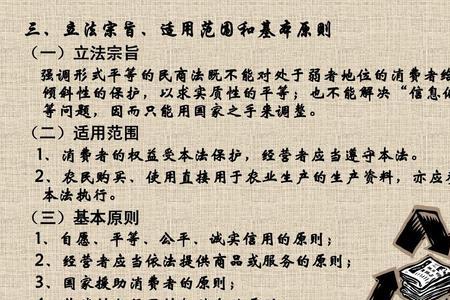 三、立法宗旨、适用范围和基本原则
（一）立法宗旨
强调形式平等的民商法既不能对处于弱者地位的消费者给
倾斜性的保护，以求实质性的平等；也不能解决“信息
等问题，因而只能用国家之手来调整。
（二）适用范围
1、消费者的权益受本法保护，经营者应当遵守本法。
2、农民购买、使用直接用于农业生产的生产资料，亦应
本法执行。
（三）基本原则
1、自愿、平等、公平、诚实信用的原则；
2、经营者应当依法提供商品或服务的原则；
3、国家援助消费者的原则；